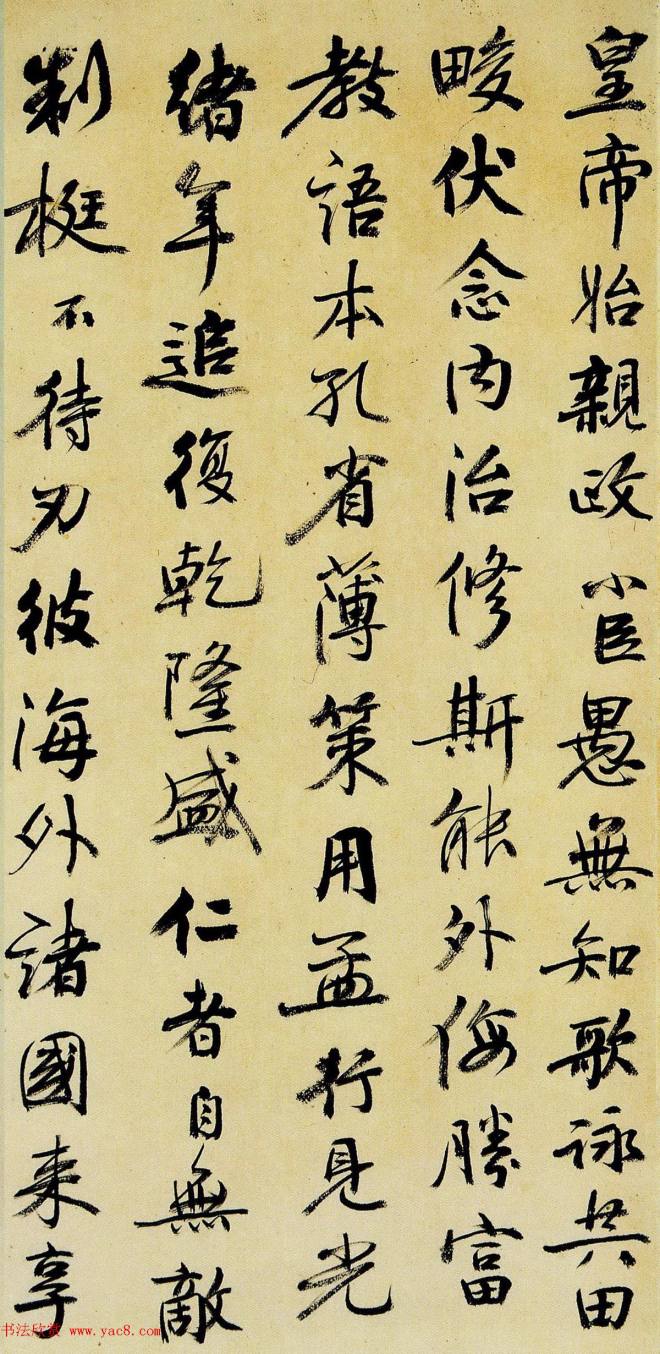 皇帝始親政小臣愚無知歌詠共田
畯伏念内治修斯能外侮勝富
教語本孔省薄策用孟行見光
緒年追復乾隆盛仁者自無敵
制梃不待刃彼海外諸國来享
书法欣赏 www.yac8.com